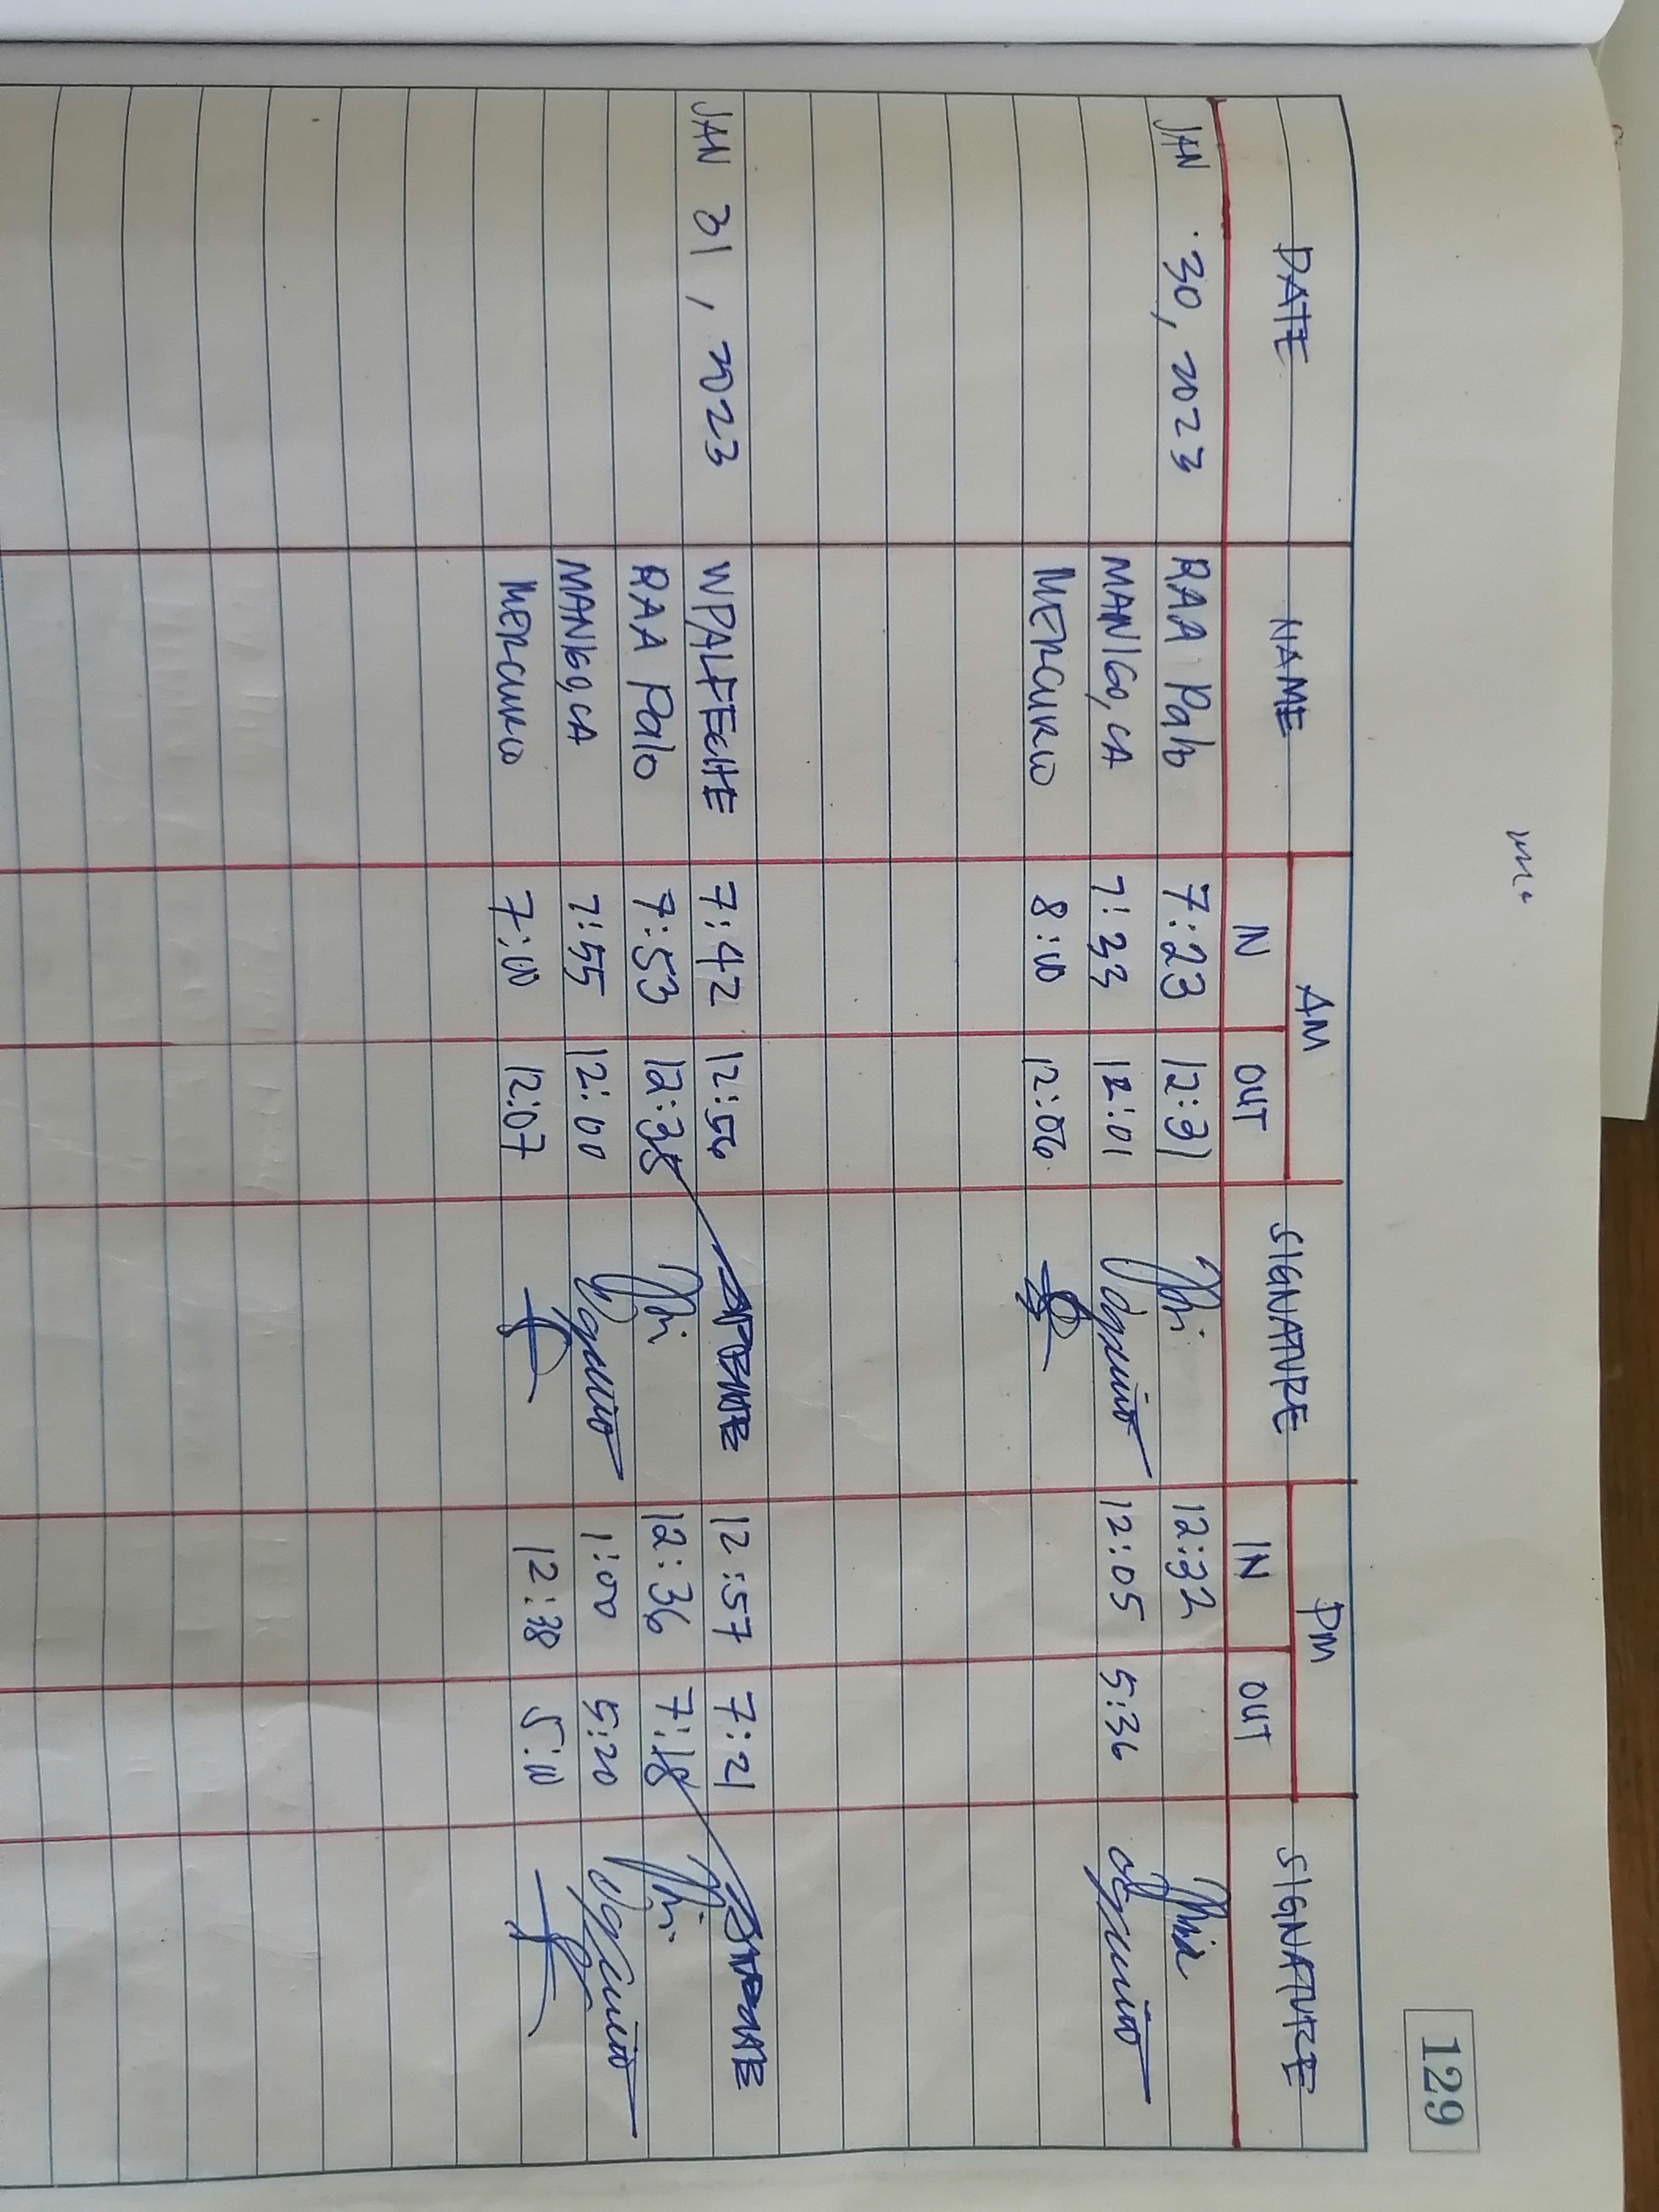 129
DATE NAME AM SIGNATURE PM SIGNATURE
IN OUT IN OUT
JAN 30, 2023 RAA Palo 7:23 12:31 12:32
MANIGO, CA 7:33 12:01 12:05 5:36
MERCURIO 8:00 12:06
JAN 31, 2023 WPALFECHE 7:42 12:56 12:57 7:21
RAA Palo 7:53 12:35 12:36 7:18
MANIGO, CA 7:55 12:00 1:00 5:20
MERCURIO 7:00 12:07 12:38 5:00